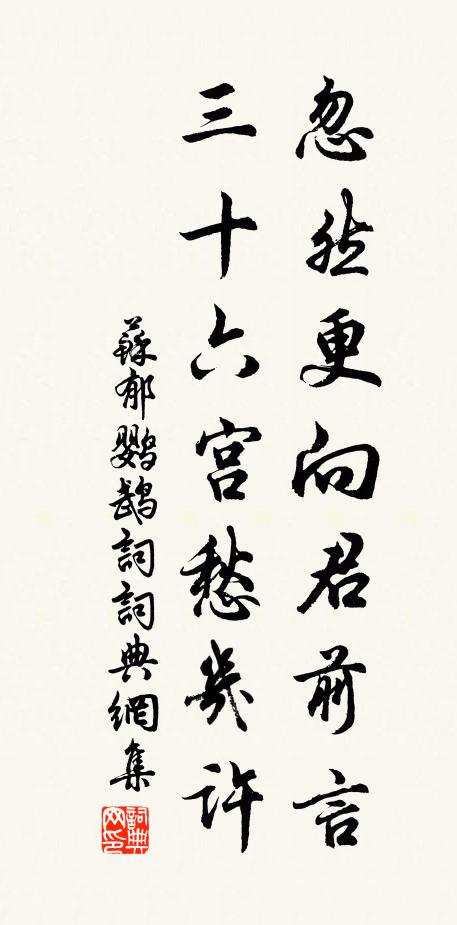 忽然更向君前言
三十六宫愁幾许
蘇郁鸚鵡詞詞典網集
詞典
网印